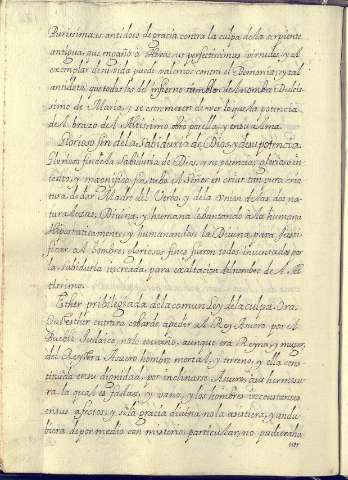 Purissima es antidoto de gracia contra la culpa de la serpiente
antigua, que engaño a Eva: sus perfectissimas virtudes, y el
exemplar de su vida puede valernos contra el Demonio; y tal
antidoto, que todos los del infierno tiemblan del Nombre Dulcis
simo de Maria, y se estremecen de ver lo que la potencia
del brazo del Altissimo obrò por ella, y en su Alma.
Glorioso fin de la Sabiduria de Dios, y de su potencia.
Gloriosa fue toda sabiduria de Dios, y su potencia, glorioso in
tento, y magnifico fin tubo el Señor en criar tan pura cria
tura, de ser Madre del Verbo, y de la union de las dos na
turalezas, Divina, y humana, lebantando a la humana
Hipostaticamente, y humanandose la Divina, para justi
ficar al hombre, gloriosos fines fueron todos inventados por
la sabiduria increada, para exaltacion del hombre de el Al
tissimo.
Esther pribilegiada de la comun Ley de la culpa. Ora.
Que Esther entrara cobarde a pedir al Rey Asuero por el
Pueblo Judaico, no lo estraño, aunque era Reyna, y muger
del Rey. Era Asuero hombre mortal, y terreno, y ella cons
tituida en su dignidad, por inclinarse Asuero a su hermosu
ra, la qual es falaz, y vana, y los hombres inconstantes
en sus afectos, y si la gracia divina no la asistiera, y andu
biera de por medio con misterio particular, no pudiera ha